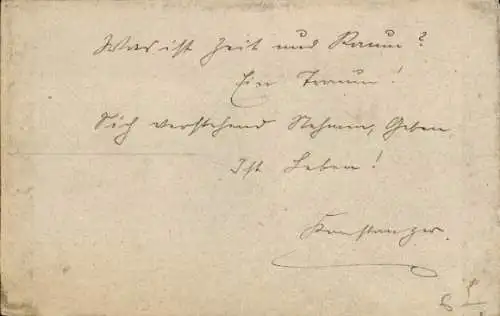 Was ist Zeit und Raum?
Ein Traum!
Sich verstehend Nehmen, Geben
Ist Leben!
Konstanzer.